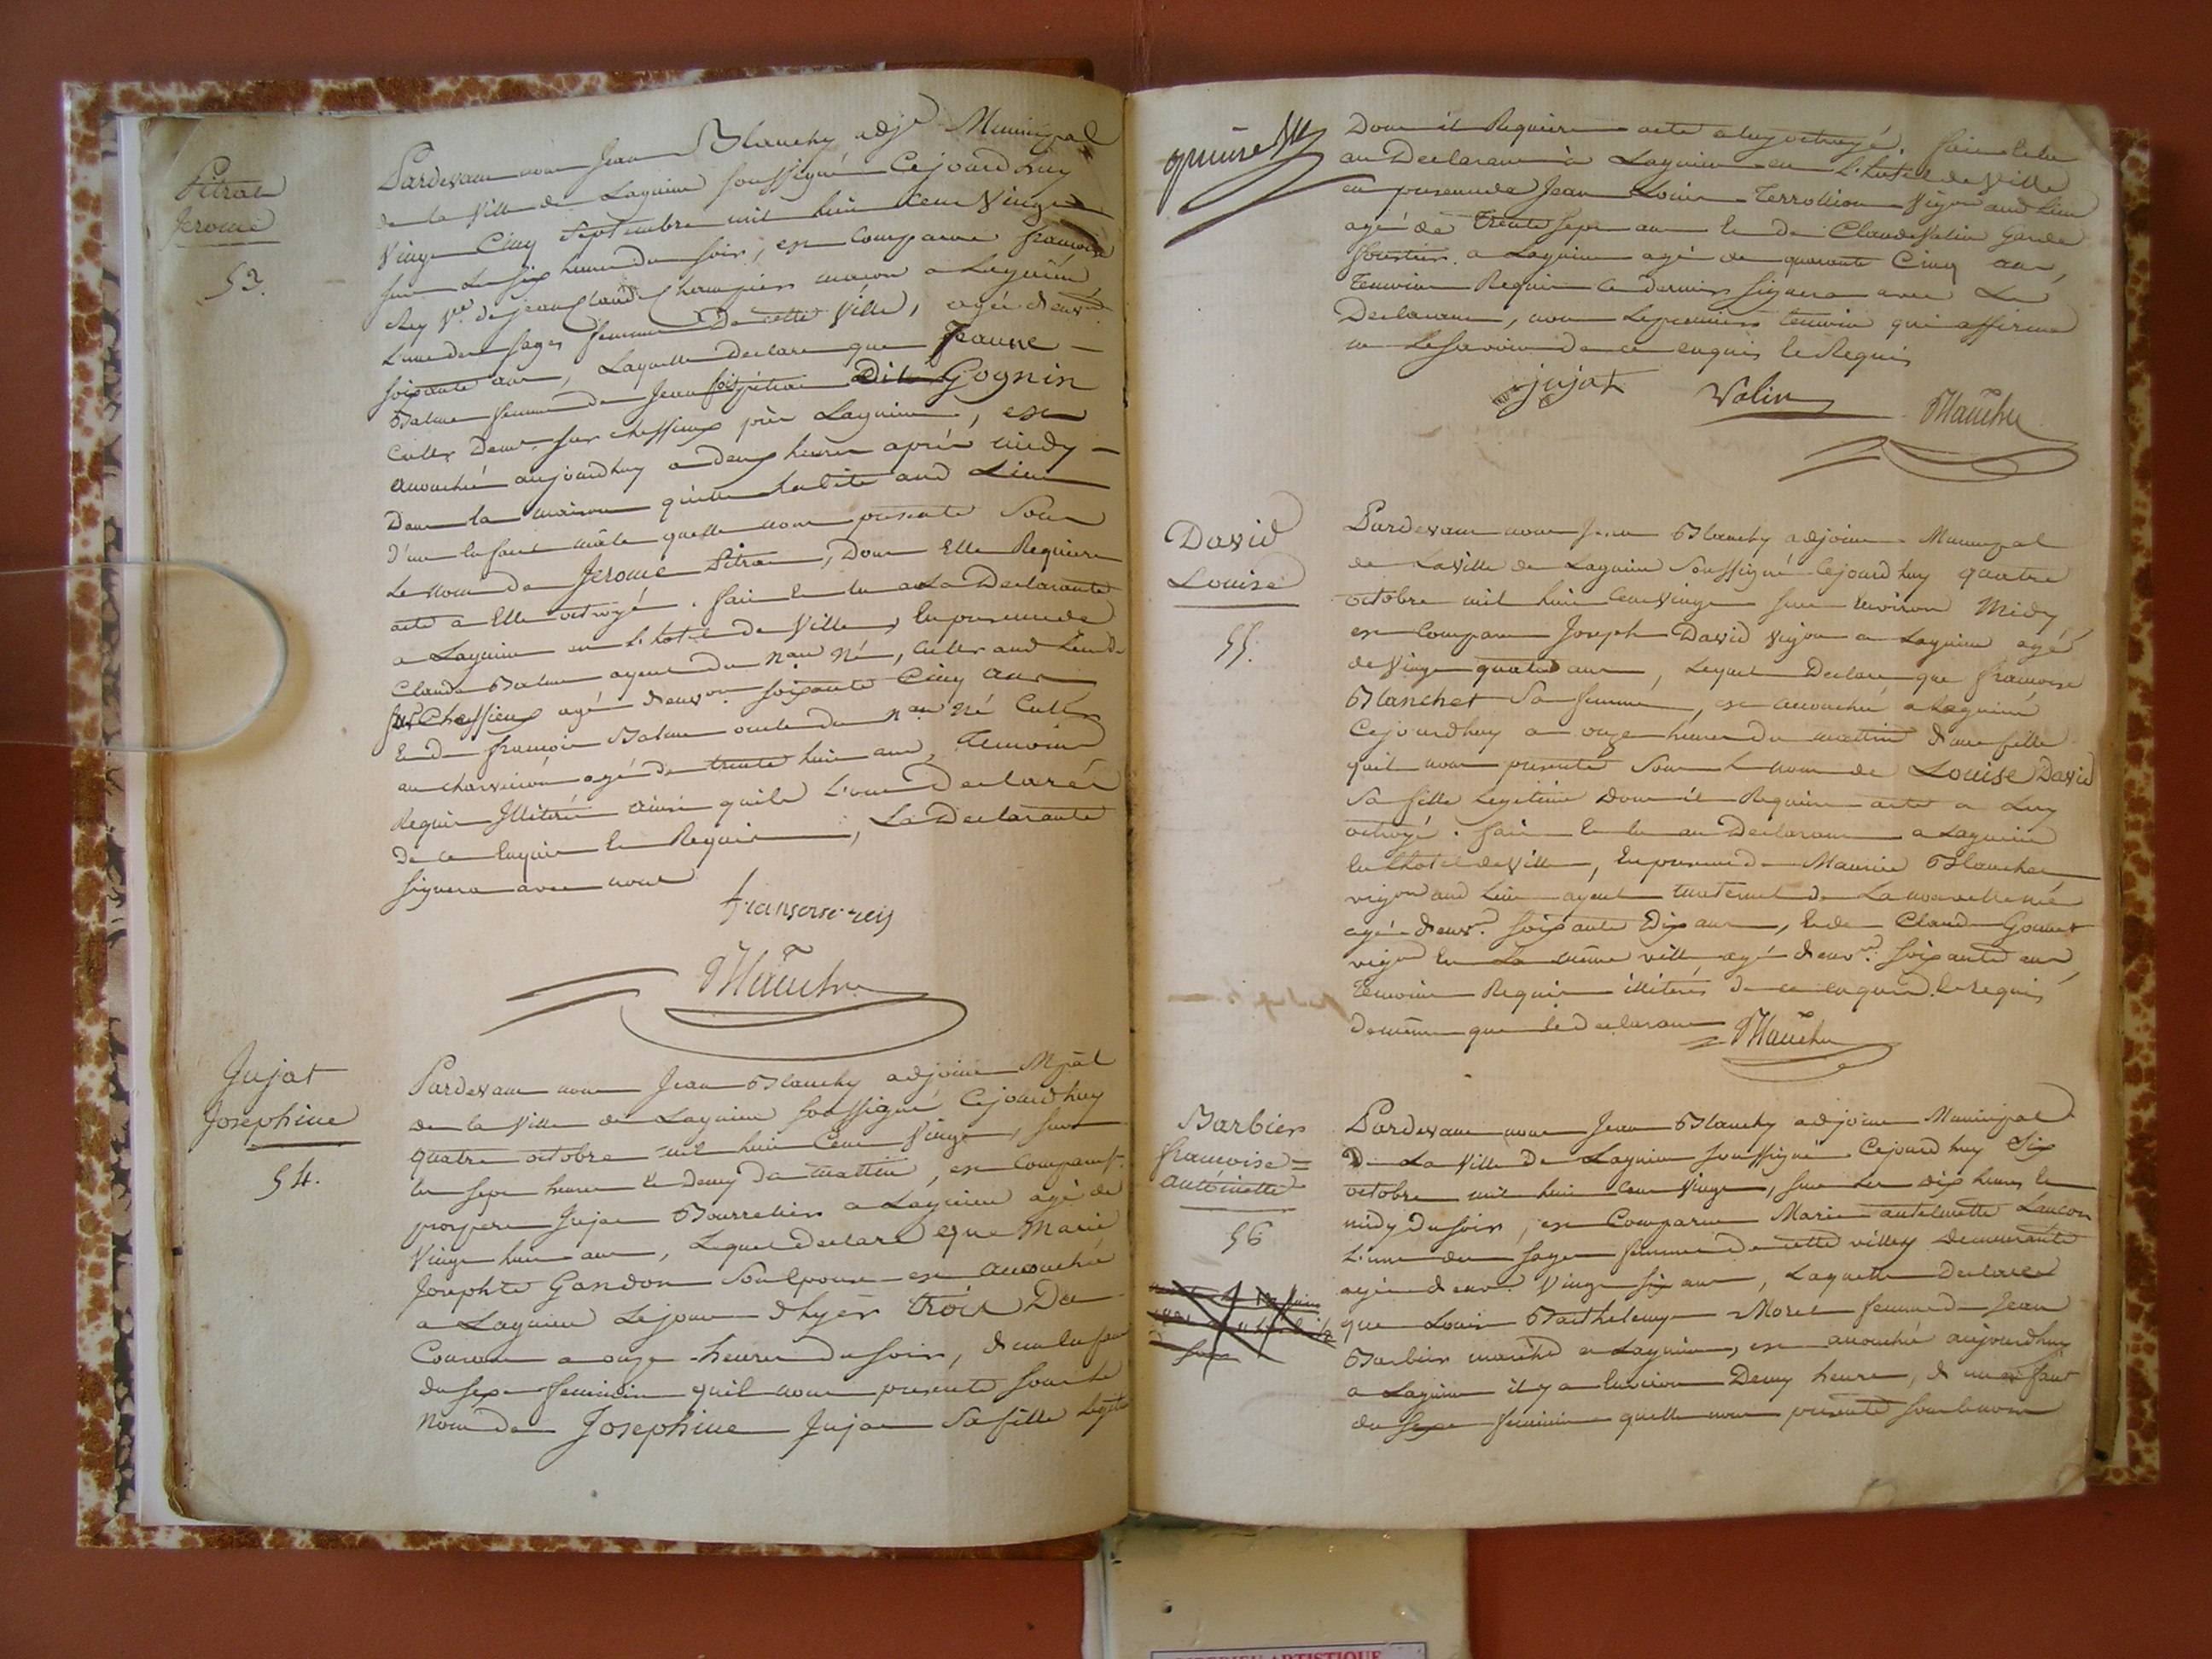 Pitrat
Jerome
53.
Pardevant nous Jean Blanchy adj.t Municipal
de la Ville de Lagnieu soussigné Cejourdhuy
Vingt Cinq Septembre mil huit cent Vingt
sur les six heures du soir, est comparue françoise
Rey V.e de jean Claude Champier maçon a Lagnieu
l'une des sages femmes De cette Ville, agée d'env.on
soixante ans, Laquelle Declare que Jeanne
Balme femme de Jean f.ois pitrat Dit Gognin
Cultr Demt sur chessieux près Lagnieu, est
accouchée aujourdhuy a deux heures après midy
Dans la maison qu'elle habite aud Lieu
d'un Enfant mâle quelle nous presente Sous
Le nom de Jerome Pitrat, Dont Elle Requiere
acte a Elle octroyé. fait et lu a La Declarante
a Lagnieu en l'hotel de Ville, En presence de
Claude Balme ayeul du n.au Né, Cultr aud Lieu de
sur Chessieux agé d'env.on soixante Cinq ans
Et de françois Balme oncle du n.au né Cultr
au charveiron agé de trente huit ans, Temoins
Requis Illiterés ainsi quils l'ont Declarés
de ce Enquis Et Requis, La Declarante
signera avec nous
fransoise rey
Blanchy
Jujat
Josephine
54.
Pardevant nous Jean Blanchy adjoint Mpal
de la Ville de Lagnieu soussigné Cejourdhuy
quatre octobre mil huit Cent Vingt, sur
les sept heures et demy du mattin, est Comparut
prospere Jujat Bourrelier a Lagnieu agé de
Vingt huit ans, Lequel declare que Marie
Josephte Gandon Son Epouse est accouchée
a Lagnieu Le jour d'hyer trois Du
Courant a onze heures du soir, d'un Enfant
du sexe feminin quil nous presente sous le
Nom de Josephine Jujat Sa fille Legite
Dont il Requiere acte a luy octroyé. fait et lu
au Declarant à Lagnieu en l'hotel de Ville
en presence de Jean Louis Terrollion Vigon aud Lieu
agé de trente sept ans et de Claude Valin Garde
forestier a Lagnieu agé de quarante Cinq ans,
Temoins Requis Ce dernier signera avec Le
Declarant, non Le premier temoin qui affirme
ne Le savoir de ce enquis et Requis
jujat Valin Blanchy
David
Louise
55.
Pardevant nous Jean Blanchy adjoint Municipal
de La Ville de Lagnieu Soussigné Cejourdhuy quatre
octobre mil huit Cent vingt sur Environ Midy
est Comparu Joseph David vigon a Lagnieu agé
de Vingt quatre ans, Lequel Declare que françoise
Blanchet Sa femme, est accouchée a Lagnieu
Cejourdhuy a onze heures du mattin d'une fille
quil nous presente Sous le nom de Louise David
Sa fille Legitime Dont il Requiere acte a Luy
octroyé. fait Et lu au Declarant a Lagnieu
En l'hotel de Ville, En presence de Maurice Blanchet
vigon aud Lieu ayeul maternel de La nouvelle née
agé d'env.on soixante Dix ans, Et de Claude Gouvet
vigon En La même ville agé d'env.on soixante ans
Temoins Requis illiterés de ce enquis et requis
de même que le declarant Blanchy
Barbier
françoise =
antoinette
56
Pardevant nous Jean Blanchy adjoint Municipal
De La Ville De Lagnieu soussigné Cejourd huy Six
octobre mil huit Cent Vingt, sur Les dix heures Et
midy du soir, est Comparue Marie antelmette Lancon
L'une des sages femmes de cette ville y Demeurante
agée d'env.on Vingt six ans, Laquelle Declare
que Louise Barthelemye Morel femme de Jean
Barbier marchd a Lagnieu, est accouchée aujourdhuy
a Lagnieu il y a Environ Demy heure, d'un Enfant
du sexe feminin quelle nous presente sous le nom